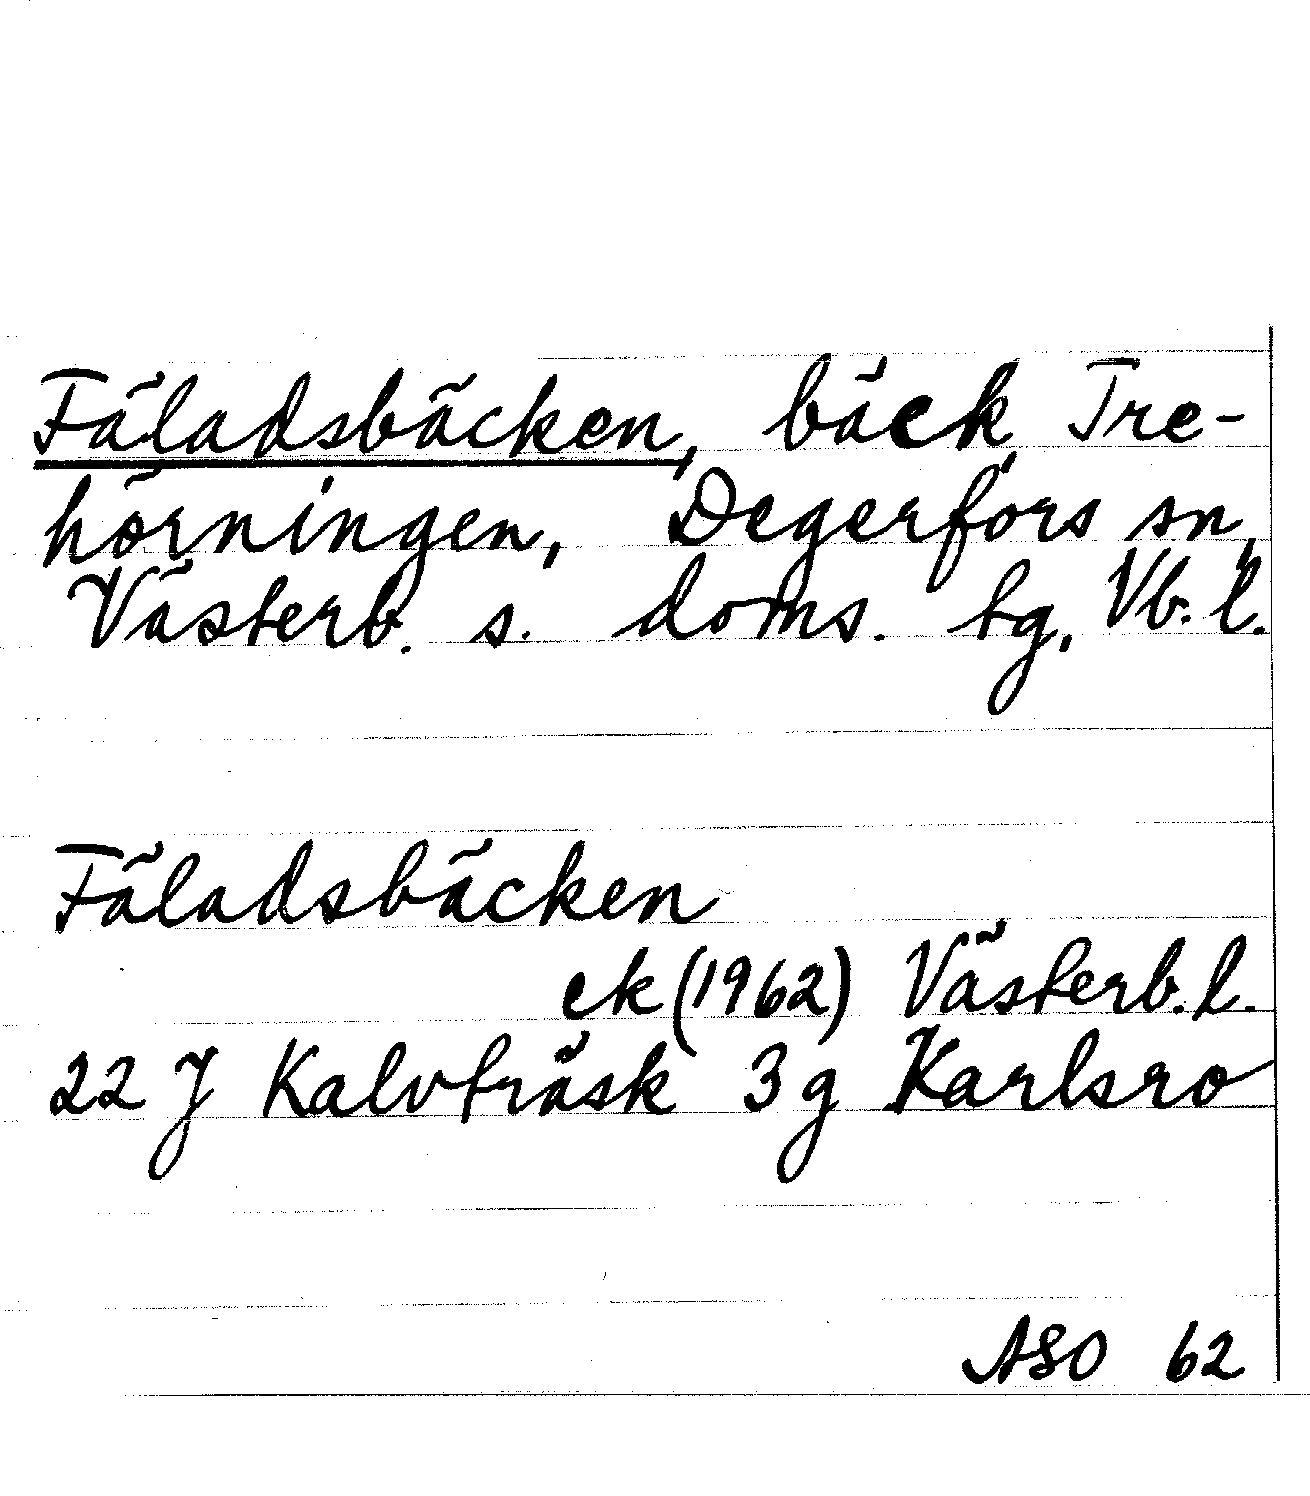 Fäladsbäcken, bäck Tre-
hörningen, Degerfors sn,
Västerb. s. doms. tg, Vb. l.
Fäladsbäcken
ek (1962) Västerb. l.
22 J Kalvträsk 3 g Karlsro
ASO 62